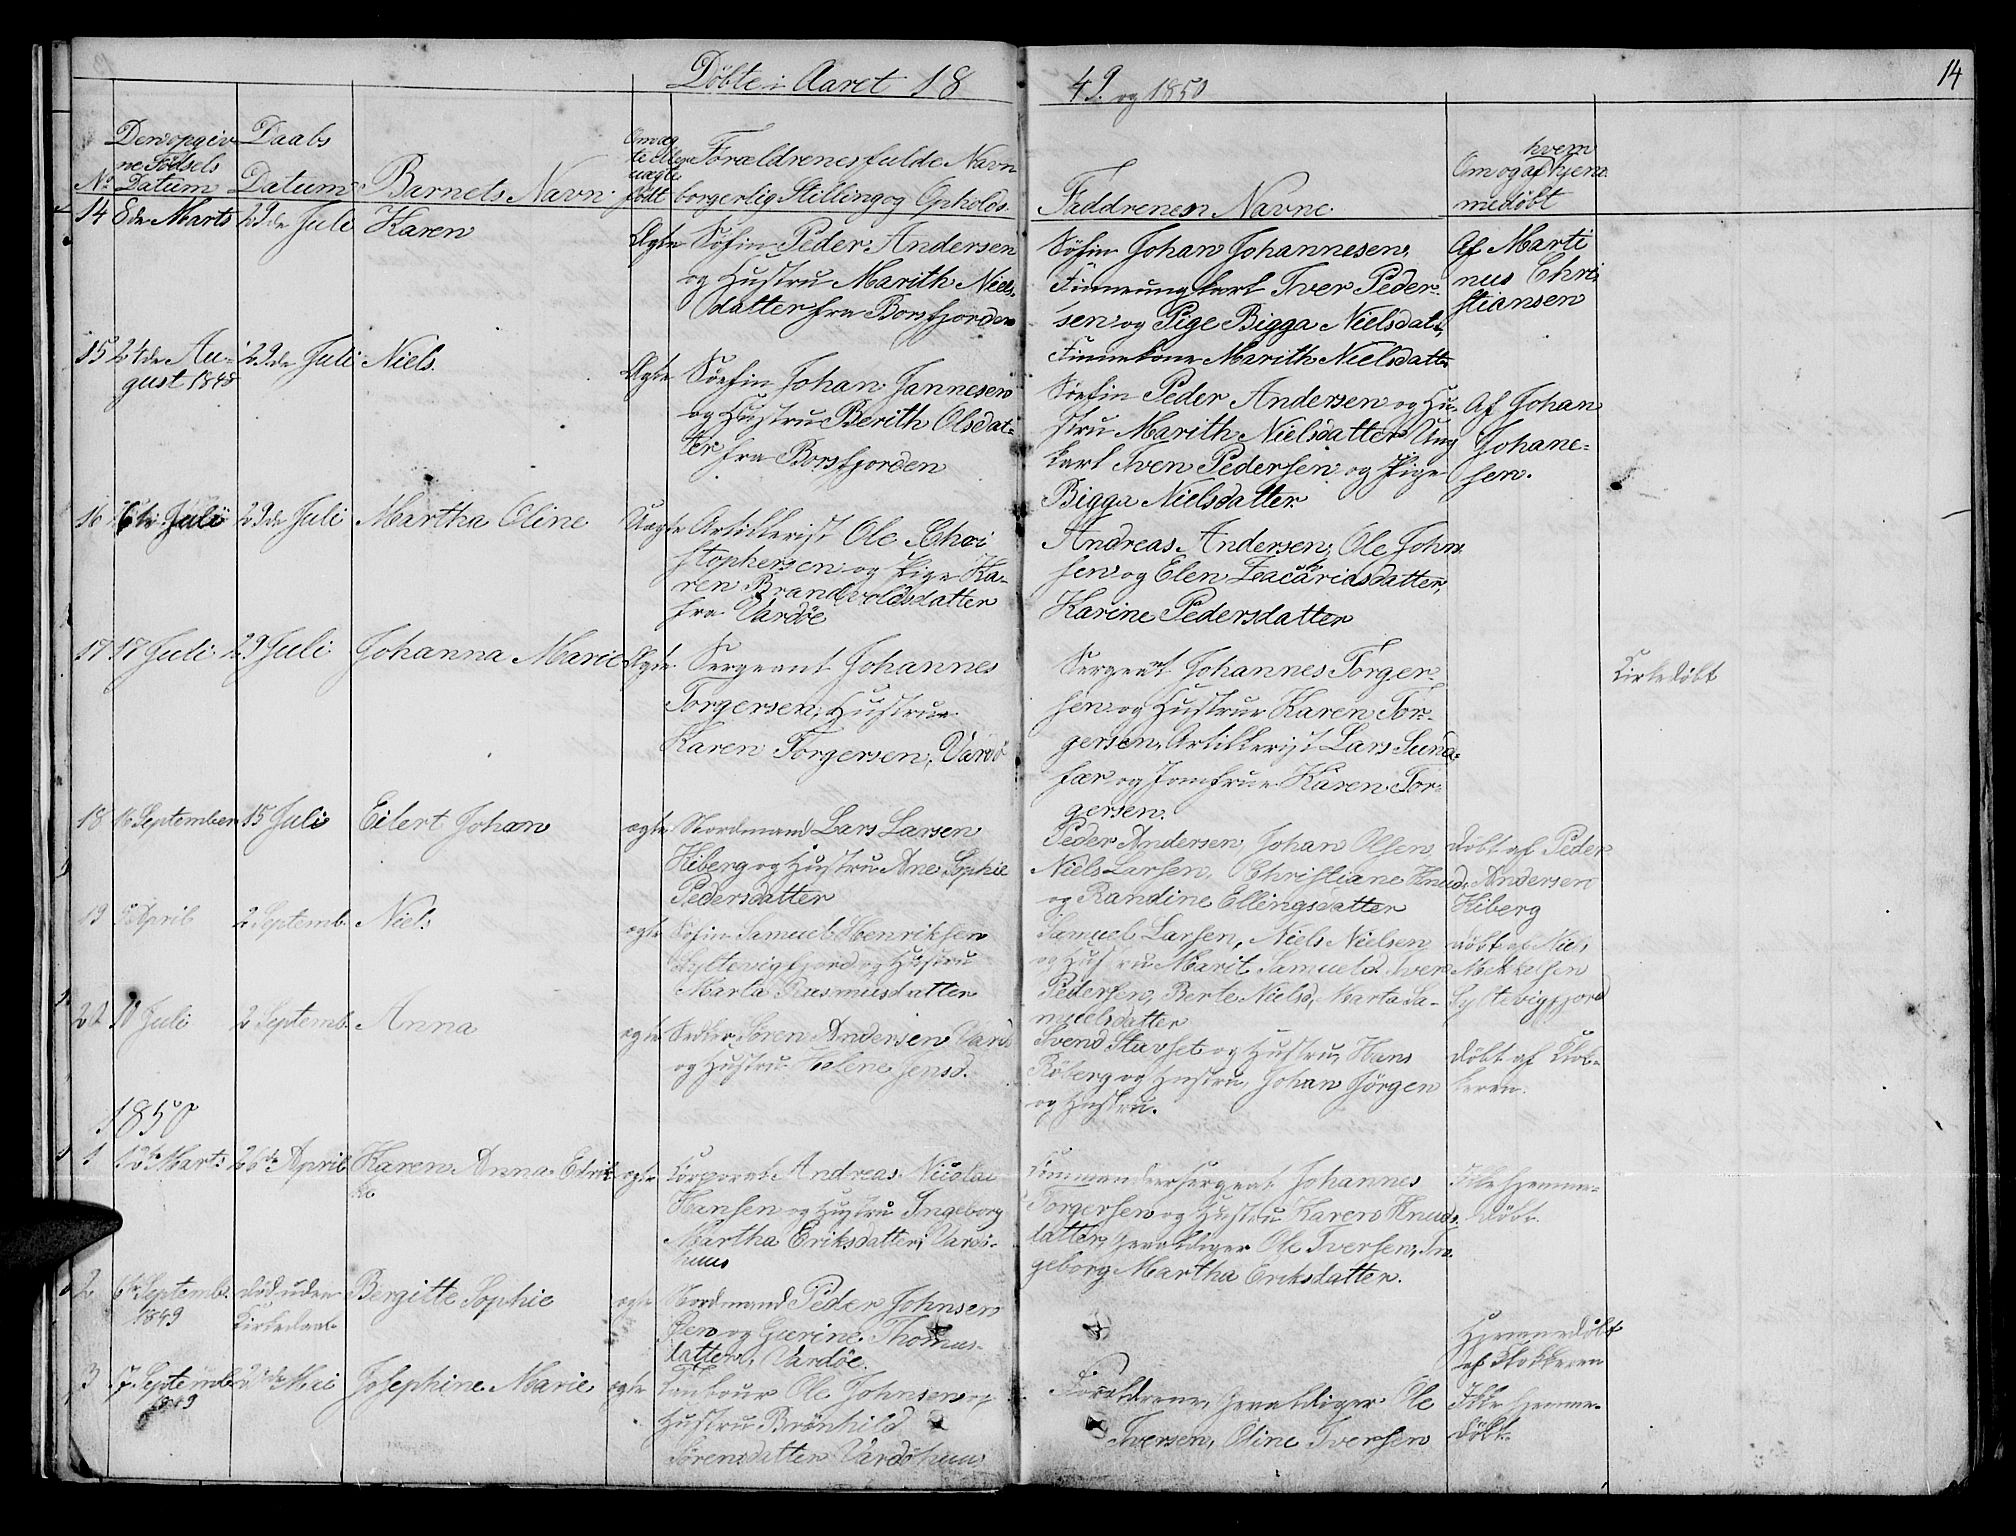 Döbte i Aaret 18
49. og 1850
14
No
Den opgiv-
ne Födsels
Datum
Daabs
Datum
Barnets Navn
Om æg-
te eller
uægte
födt
Forældrenes fulde Navn
borgerlig Stilling og Ophold.
Faddrenes Navne.
Om og af hvem hjem-
medöbt
14 8de Marts 29de Juli Karen
Ægte Söfin Peder Andersen
og Hustru Marith Niels-
datter fra Borsfjorden
Söfin Johan Johannesen,
Finneungkarl Iver Peder-
sen og Pige Bigga Nielsdat.,
Finnekone Marith Nielsdatt.
Af Marti
nus Chri
stiansen
15 24de Au-
gust 1848
29de Juli Niels.
Ægte Söefin Johan Jannesen
og Hustru Berith Olsdat-
ter fra Borsfjorden
Söefin Peder Andersen og Hu-
stru Marith Nielsdatter Ung
karl Iven Pedersen og Pige
Bigga Nielsdatter
Af Johan
Johane-
sen.
16 6te Juli 29de Juli Martha Oline
Uægte Artillerist Ole Chri
stophersen og Pige Ka-
ren Brandvoldsdatter
fra Vardöe
Andreas Andersen, Ole John
sen og Elen Zacariasdatter,
Karine Pedersdatter
17 17 Juli 29 Juli Johanna Marie
Ægte Sergeant Johannes
Torgersen, Hustrue
Karen Torgersen, Vardö
Sergeant Johannes Torger-
sen og Hustrue Karen Tor-
gersen, Artillerist Lars Sund-
fær og Jomfrue Karen Tor-
gersen.
Kirkedöbt
18 16 September 15 Juli Eilert Johan
ægte Nordmand Lars Larsen
Kiberg og Hustru Ane Sophie
Pedersdatter
Peder Andersen, Johan Olsen,
Niels Larsen, Christiane Knud.
og Randine Ellingsdatter
Döbt af Peder
Andersen
Kiberg
19 5 April 2 Septemb. Niels
ægte Söfin Samuel Henriksen
Syltevigfjord og Hustru
Marta Rasmusdatter
Samuel Larsen, Niels Nielsen
og Hustru Marit Samuelsd. Iver
Pedersen, Berte Nielsd, Marta Sa-
muelsdatter
döbt af Niels
Mikkelsen
Syltevigfjord
20 10 Juli 2 Septemb. Anna
ægte Sören Andersen Vard
og Hustru Helene Jensd.
Svend Stuvset og Hustru, Hans
Röberg og Hustru, Johan Jörgen
og Hustru.
döbt af Klok-
keren.
1850
1 12te Marts 26de April Karen Anna Edrik
ke
ægte Korporal Andreas Nicolai
Hansen og Hustru Ingeborg
Martha Eriksdatter, Vardö-
huus
Commandeersergeat Johannes
Torgersen og Hustru Karen Knuds-
datter, Gevaldiger Ole Iversen, In-
geborg Martha Eriksdatter.
Ikke hjemme-
döbt.
2 6te Septemb.
1849
död uden
Kirkedaab
Bergitte Sophie
ægte Nordmand Peder Johnsen
og Gurine Thomas-
datter, Vardöe.
Hjemmedöbt
af Klokkeren
3 17 Septemb.
1849
2den Mai Josephine Marie
ægte Tambour Ole Johnsen og
Hustru Brönhild
Sörensdatter Vardöhuus
Forældrene, Gevaldiger Ole
Iversen, Oline Iversen
Ikke hjemme-
döbt.